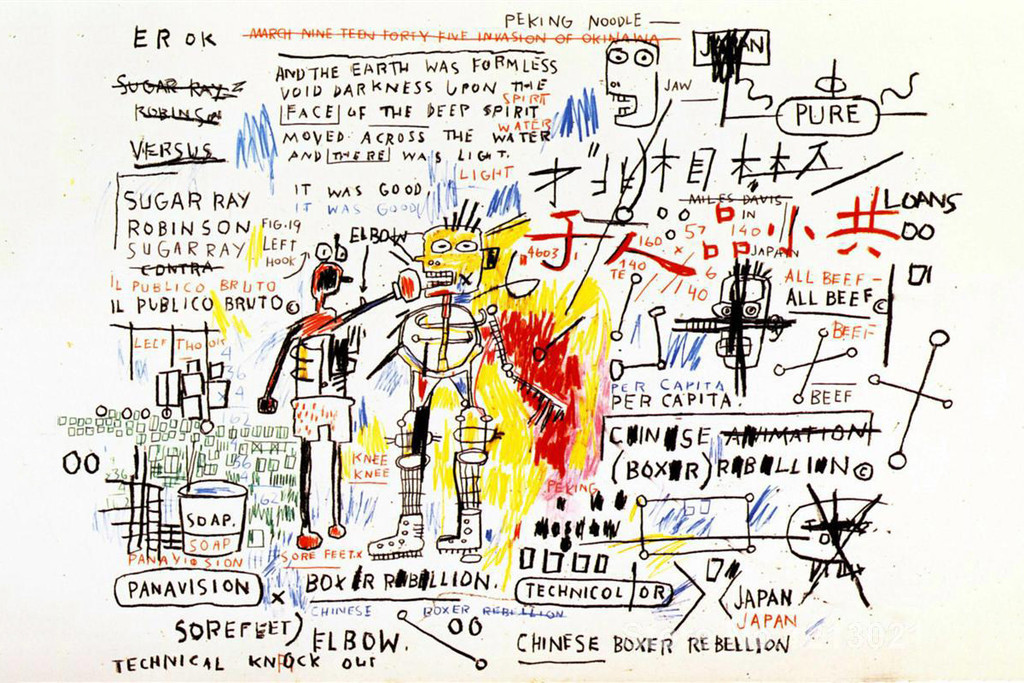 PEKING NOODLE —
EROK
MARCH NINE TEEN FORTY FIVE INVASION OF OKINAWA
JAPAN
SUGAR RAY
ROBINSON
VERSUS
AND THE EARTH WAS FORMLESS
VOID DARKNESS UPON THE
SPIRIT
FACE OF THE DEEP SPIRIT
WATER
MOVED ACROSS THE WATER
AND THERE WAS LIGHT.
LIGHT
JAW
PURE
IT WAS GOOD,
IT WAS GOOD
SUGAR RAY
ROBINSON
SUGAR RAY
CONTRA
IL PUBLICO BRUTO
IL PUBLICO BRUTO©
FIG.19
LEFT
HOOK
ELBOW
MILES DAVIS
LOANS
子人
小共
4603
160
57
140
IN
140
TE
×
6
140
JAPAN
ALL BEEF-
ALL BEEF©
BEEF
BEEF
PER CAPITA
PER CAPITA.
CHINESE ANIMATION
(BOXER) REBELLION©
36
162
36
162
KNEE
KNEE
SOAP.
SOAP
PANAVISION
PANAVISION
SORE FEET.X
X
BOXER REBELLION.
CHINESE BOXER REBELLION
PEKING
MOSCOW
TECHNICOLOR
JAPAN
JAPAN
SOREFEET)
ELBOW.
TECHNICAL KNOCK OUT
CHINESE BOXER REBELLION